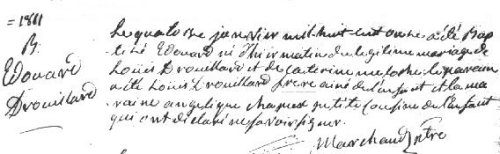 =1811
B.
Edouard
Drouillard
Le quatorze janvier mil huit cent onze a été Bap
tisé Edouard né d'hier matin du legitime mariage de
Louis Drouillard et de Caterine meloche le parrain
a été Louis Drouillard frere ainé de l'enfant et la ma
raine angelique petite Cousine de l'enfant
qui ont déclaré ne savoir signer.
Marchand ptre